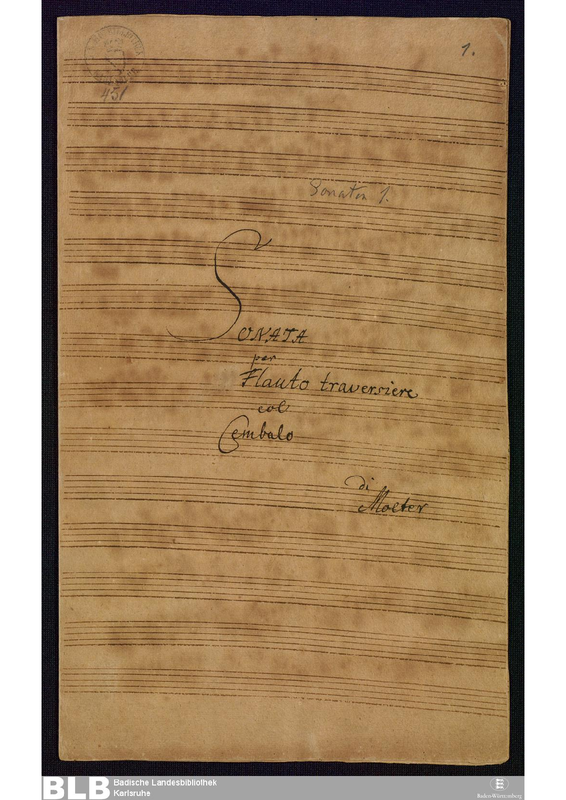 1.
451
Sonaten 1.
SONATA
per
Flauto traversiere
col
Cembalo
di
Molter
BLB Badische Landesbibliothek
Karlsruhe
Baden-Württemberg